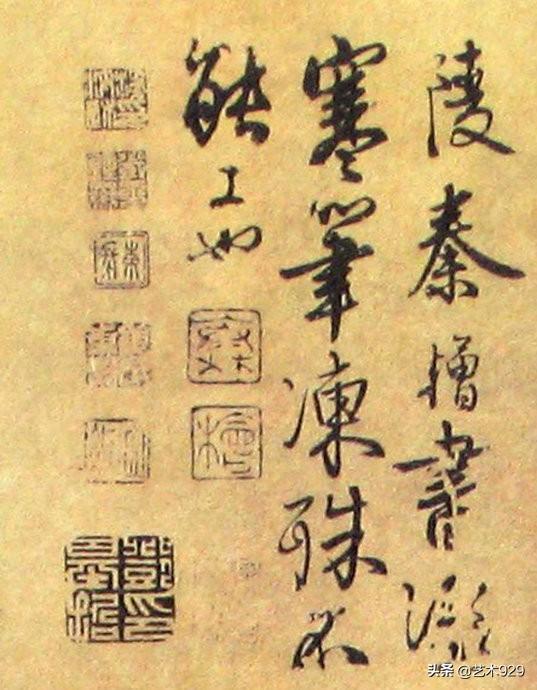 陵秦檜書凝
寒筆凍殊不
能工也
头条 @艺术929